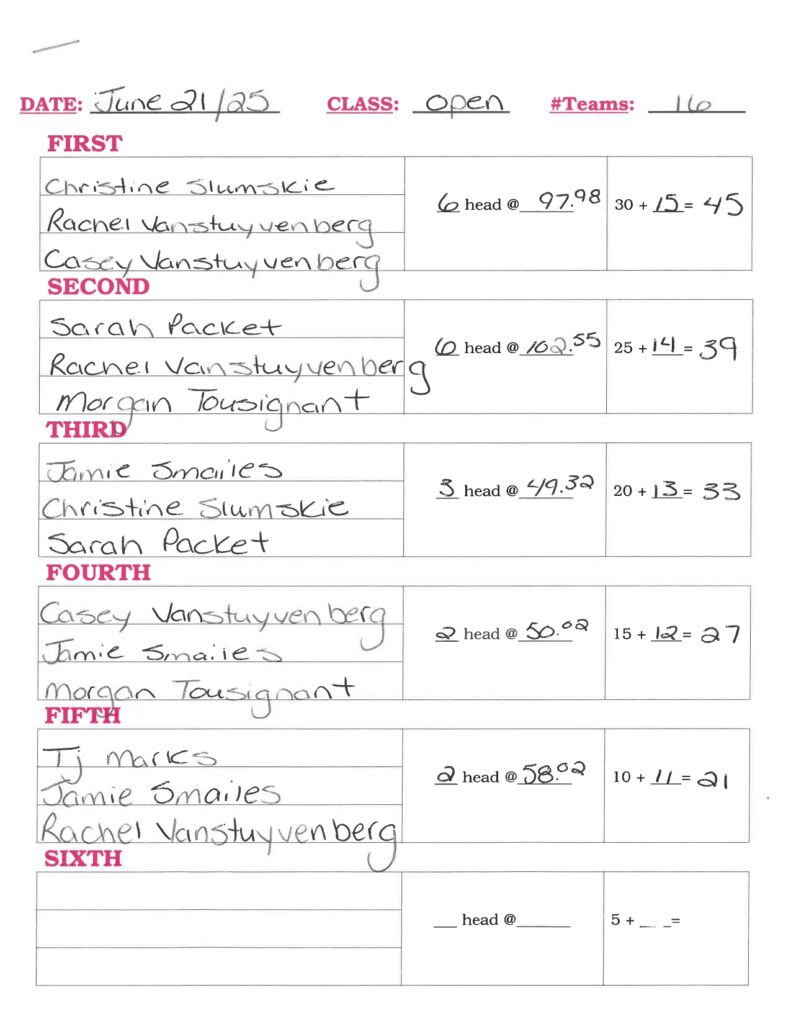 DATE: June 21/25 CLASS: open #Teams: 16
FIRST
Christine Slumskie
Rachel Vanstuyvenberg
Casey Vanstuyvenberg
6 head @ 97.98
30 + 15 = 45
SECOND
Sarah Packet
Rachel Vanstuyvenberg
Morgan Tousignant
6 head @ 102.55
25 + 14 = 39
THIRD
Jamie Smailes
Christine Slumskie
Sarah Packet
3 head @ 49.32
20 + 13 = 33
FOURTH
Casey Vanstuyvenberg
Jamie Smailes
Morgan Tousignant
2 head @ 50.02
15 + 12 = 27
FIFTH
Tj Marks
Jamie Smailes
Rachel Vanstuyvenberg
2 head @ 58.02
10 + 11 = 21
SIXTH
__ head @______
5 + __ _=